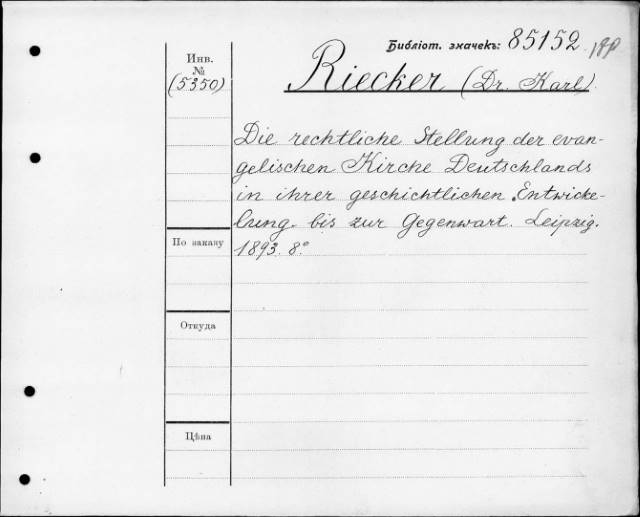 Библіот. значекъ: 85152
Инв.
№
(5350)
Riecker (Dr. Karl).
Die rechtliche Stellung der evan-
gelischen Kirche Deutschlands
in ihrer geschichtlichen Entwicke-
lung bis zur Gegenwart. Leipzig.
1893. 8°
По заказу
Откуда
Цѣна